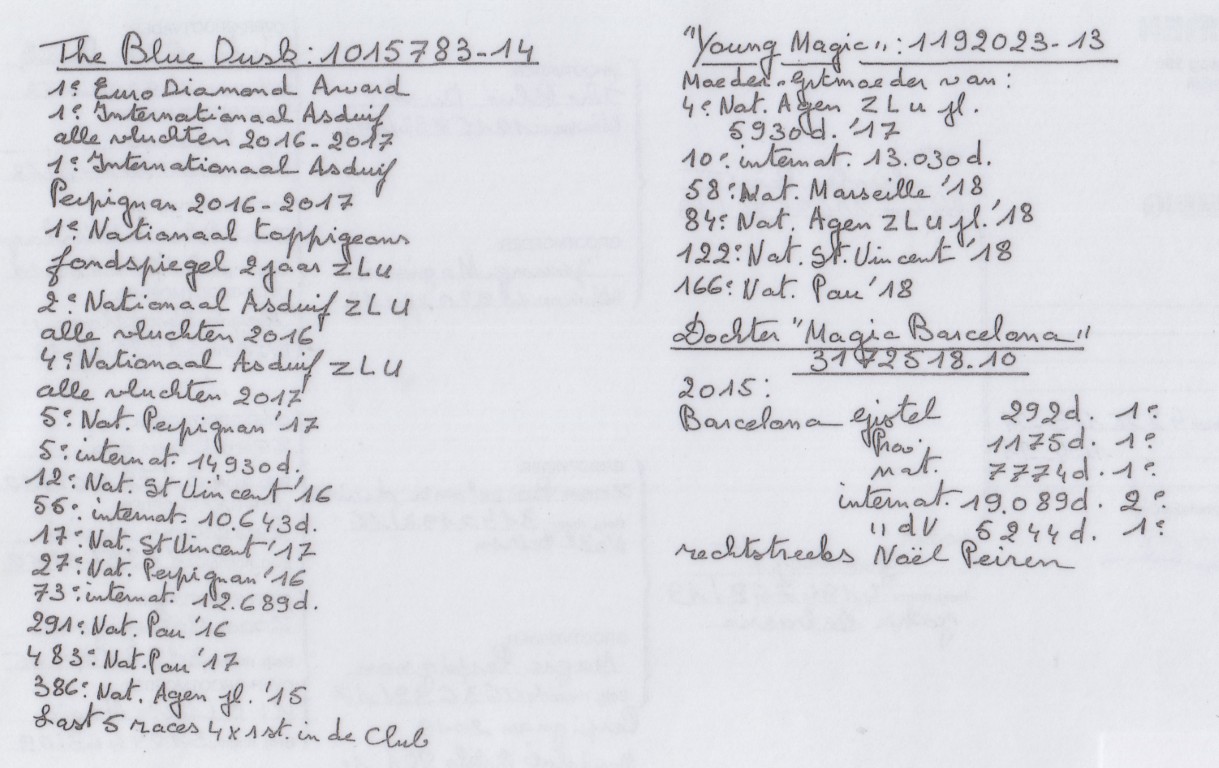 The Blue Dusk: 1015783-14
1e Euro Diamond Award
1e Internationaal Asduif
alle vluchten 2016-2017
1e Internationaal Asduif
Perpignan 2016-2017
1e Nationaal toppigeons
fondspiegel 2 jaar ZLU
2e Nationaal Asduif ZLU
alle vluchten 2016
4e Nationaal Asduif ZLU
alle vluchten 2017
5e Nat. Perpignan '17
5e internat. 14930d.
12e Nat. St Vincent '16
56e internat. 10.643d.
17e Nat. St Vincent '17
27e Nat. Perpignan '16
73e internat. 12.689d.
291e Nat. Pau '16
483e Nat. Pau '17
386e Nat. Agen jl. '15
Last 5 races 4x1st. in de Club
"Young Magic": 1192023-13
Moeder-grtmoeder van:
4e Nat. Agen ZLU jl.
5930d. '17
10e internat. 13.030d.
58e Nat. Marseille '18
84e Nat. Agen ZLU jl. '18
122e Nat. St. Vincent '18
166e Nat. Pau '18
Dochter "Magic Barcelona"
3172518-10
2015:
Barcelona gistel 292d. 1e
Prov. 1175d. 1e
nat. 7774d. 1e
internat. 19.089d. 2e
" dV 5244d. 1e
rechtstreeks Noël Peiren